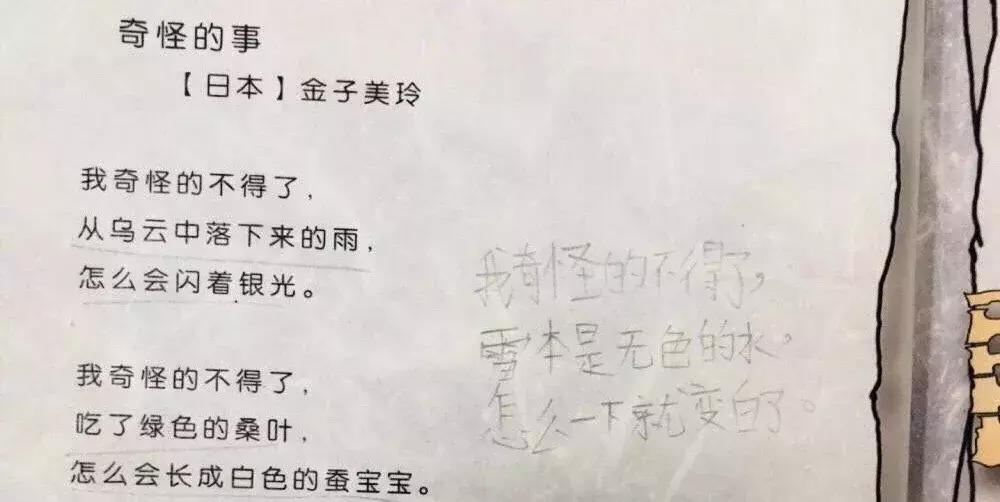 奇怪的事
【日本】金子美玲
我奇怪的不得了，
从乌云中落下来的雨，
怎么会闪着银光。
我奇怪的不得了，
吃了绿色的桑叶，
怎么会长成白色的蚕宝宝。
我奇怪的不得了，
雪本是无色的水，
怎么一下就变白了。